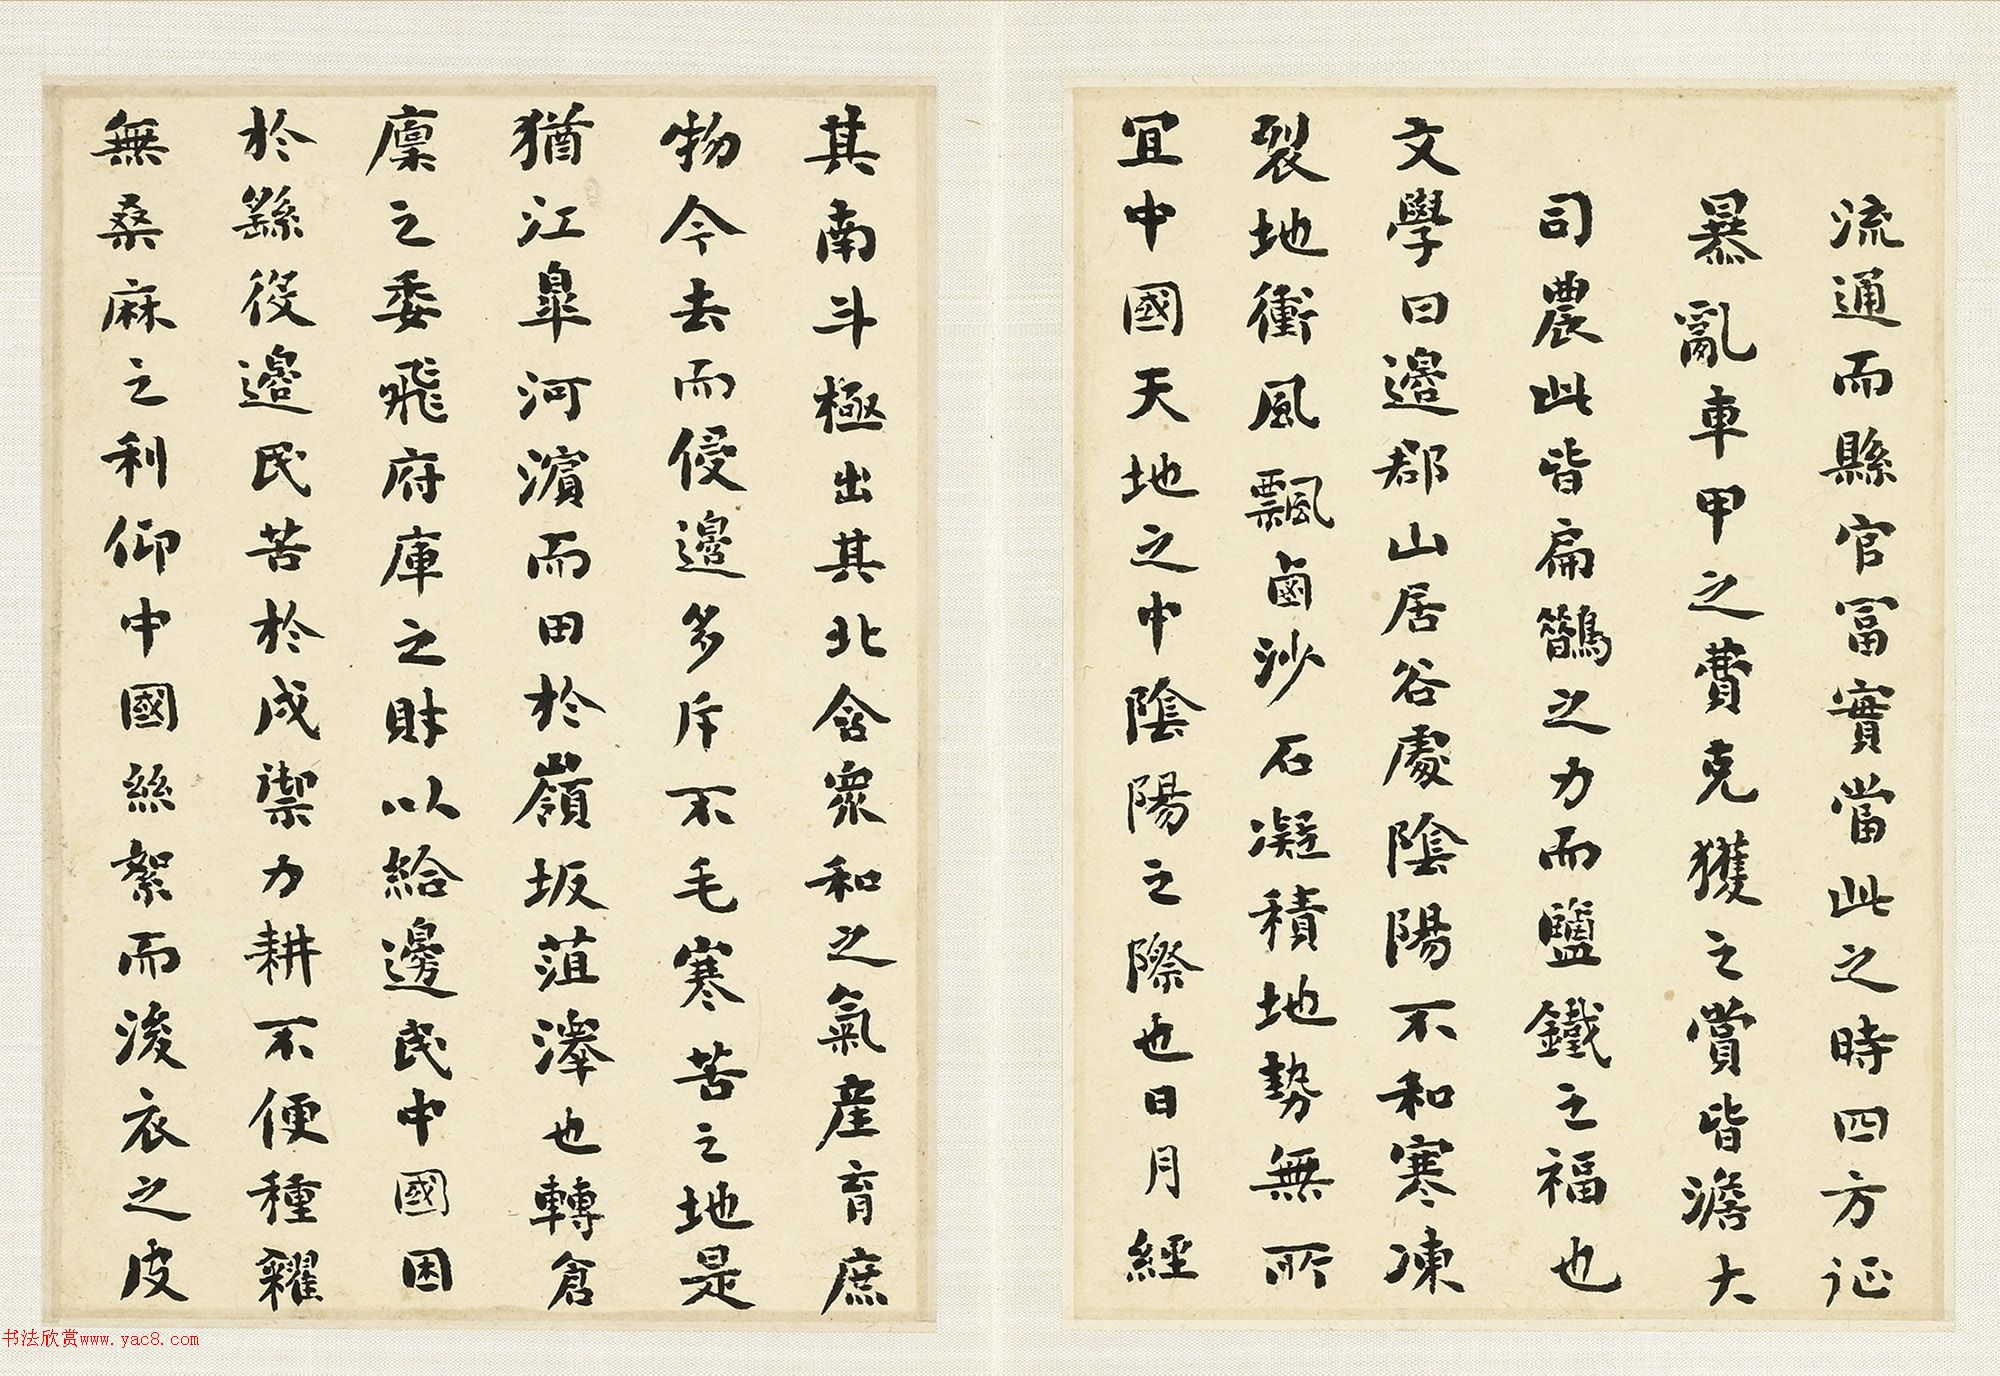 流通而縣官冨實當此之時四方征
暴亂車甲之費克獲之賞皆澹大
司農此皆扁鵲之力而鹽鐵之福也
文學曰邊郡山居谷處陰陽不和寒凍
裂地衝風飄鹵沙石凝積地勢無所
宜中國天地之中陰陽之際也日月經
其南斗極出其北含衆和之氣産育庶
物今去而侵邊多斥不毛寒苦之地是
猶江皐河濱而田於嶺坂菹澤也轉倉
廩之委飛府庫之財以給邊民中國困
於繇役邊民苦於戍禦力耕不便種糴
無桑麻之利仰中國絲絮而後衣之皮
书法欣赏www.yac8.com